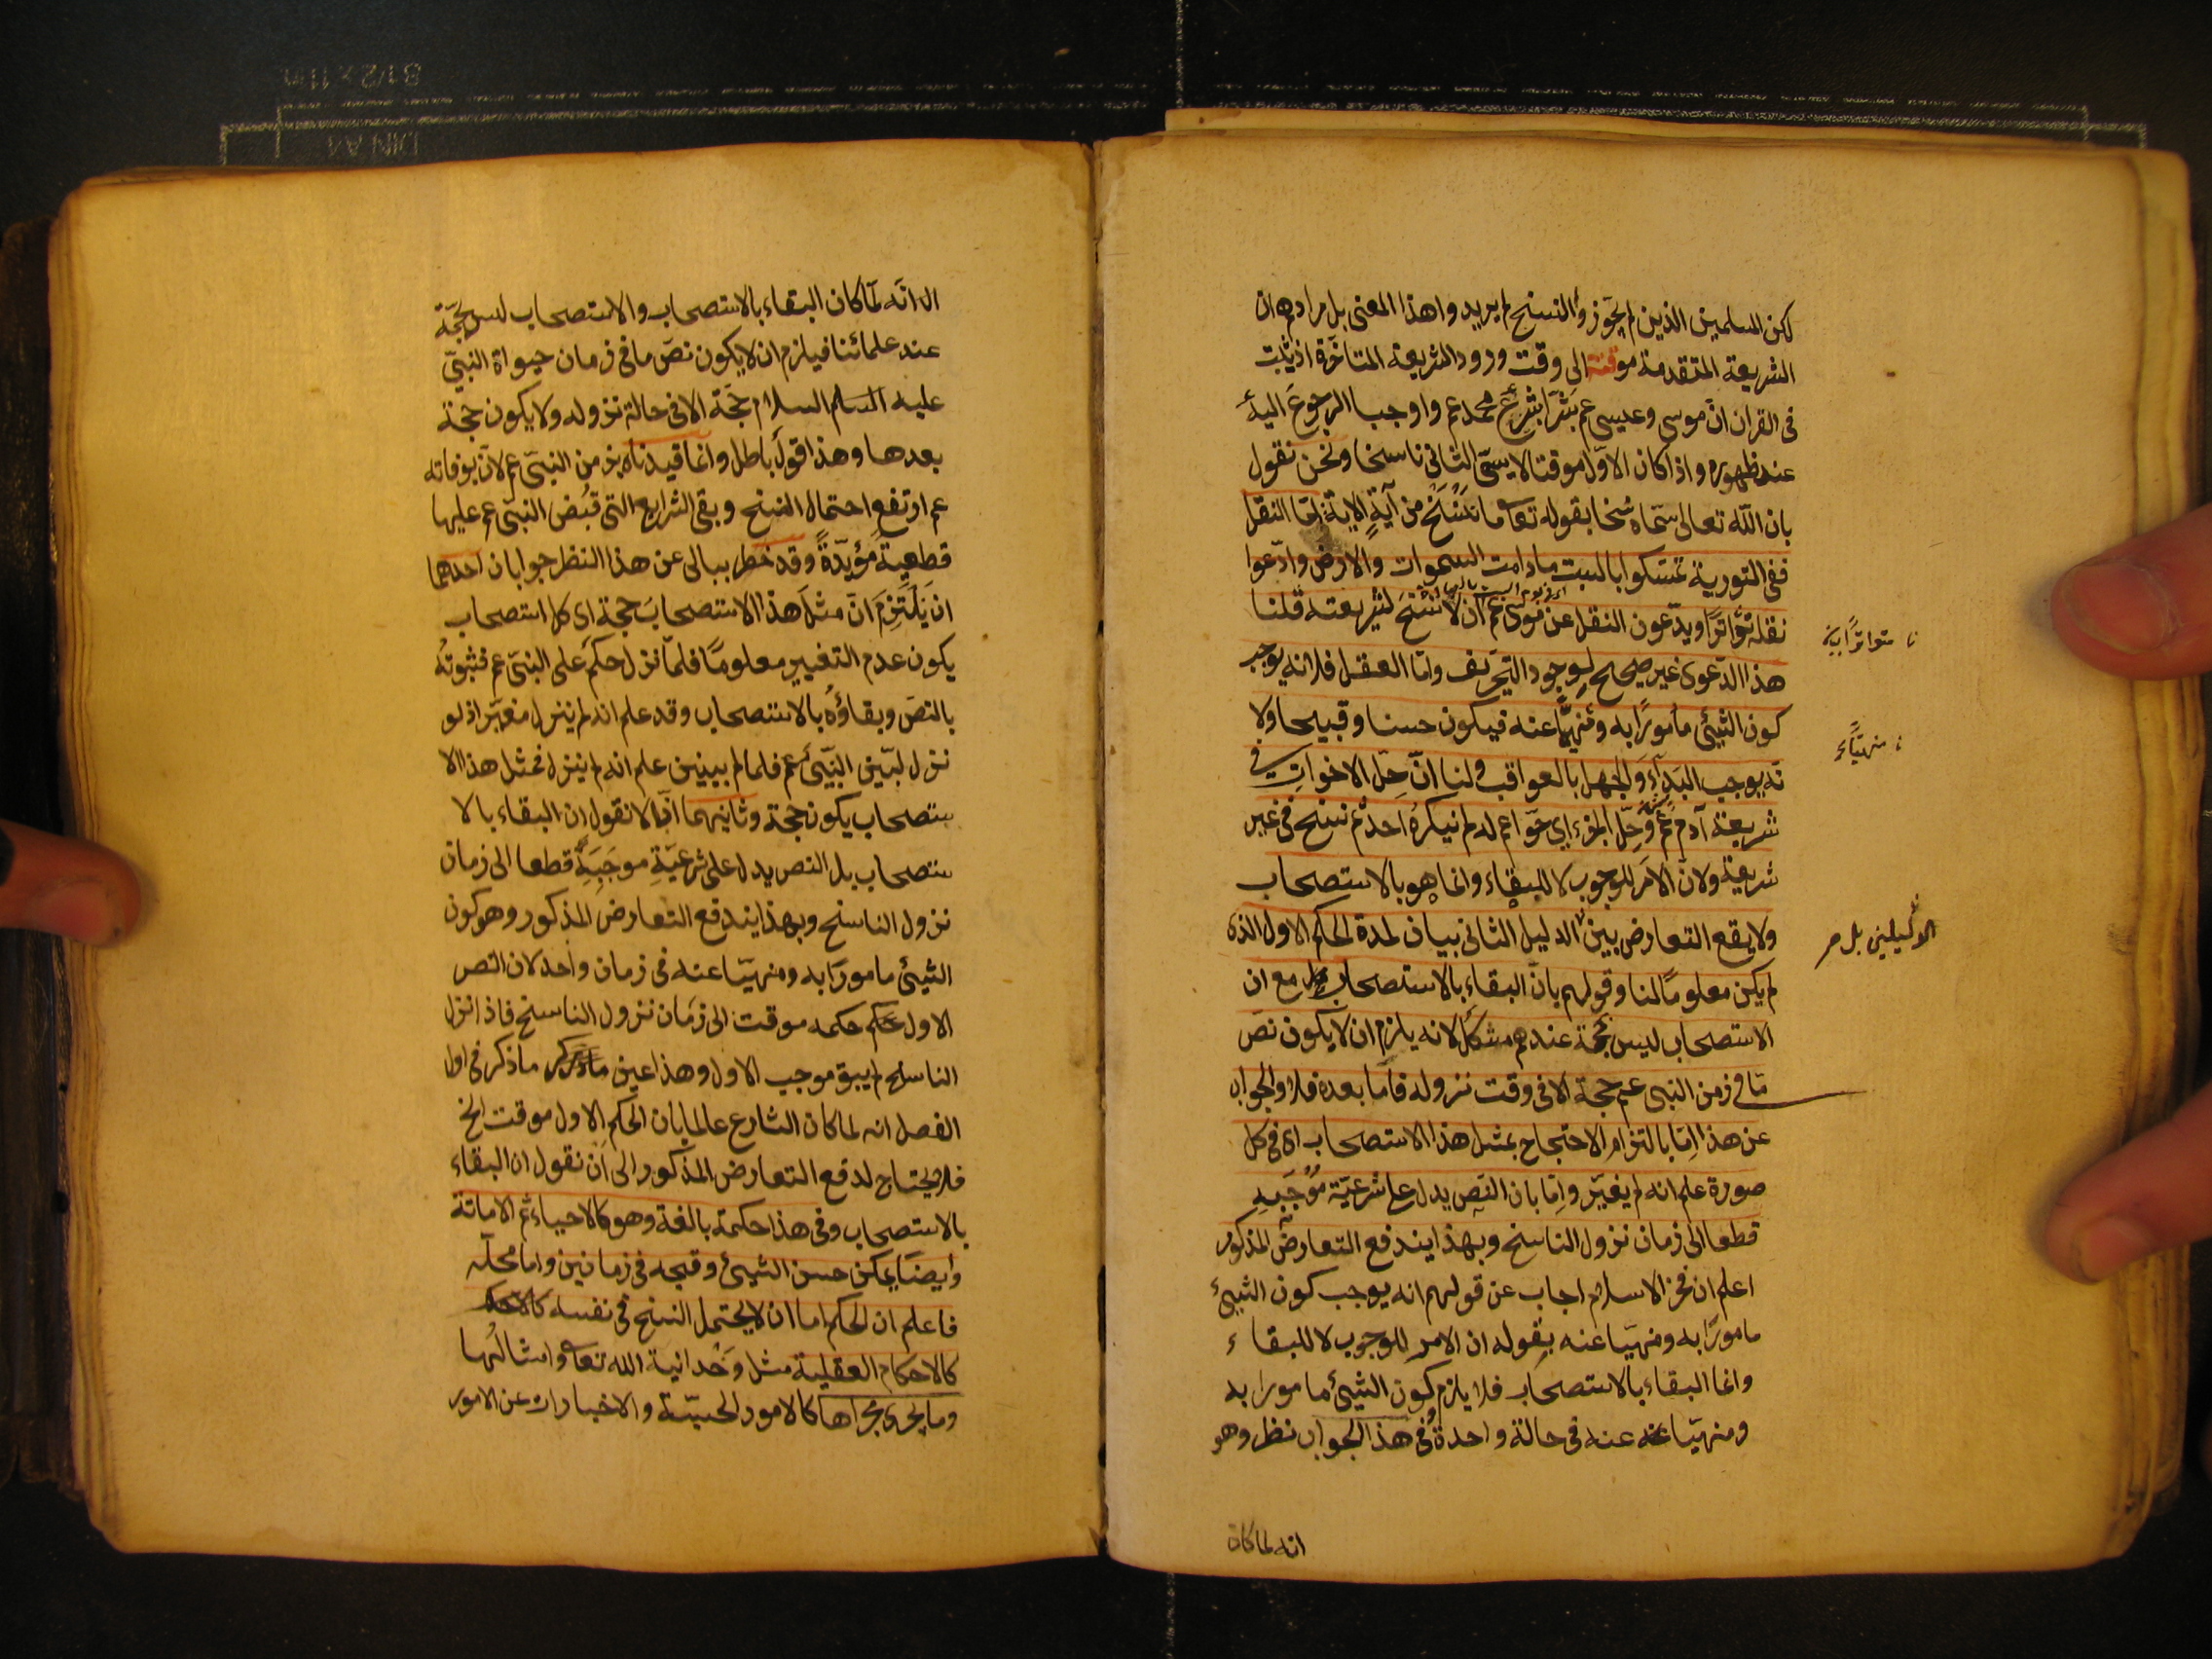 لكن المسلمين الذين لم يجوّزوا النسخ لم يريدوا هذا المعنى بل مرادهم ان
الشريعة المتقدمة موقتة الى وقت ورود الشريعة المتاخّرة اذ ثبت
فى القران انّ موسى وعيسى عم بشّرا بشرع محمد عم واوجبا الرجوع اليه
عند ظهوره واذا كان الاوّل موقتا لا يسمّى الثانى ناسخا ونحن نقول
بان اللّه تعالى سمّاه نسخا بقوله تعا ما ننسخ من آيةٍ الاية امّا النقل
ففى التورية تمسّكوا بالسبت ما دامت السموات والارض وادّعوا
نقله تواترًا ويدّعون النقل عن موسى عم ان لا نسخ لشريعته قلنا
هذا الدّعوى غير صحيح لوجود التحريف وامّا العقل فلانه يوجب
كون الشيئ مأمورًا به ومنهيًّا عنه فيكون حسنا وقبيحا ولا
نّه يوجب البَداء والجهل بالعواقب ولنا انّ حِلّ الاخوات فى
شريعة آدم عم وحِلّ الجزء اى حوّا عم له لم ينكره احد ثم نسخ فى غير
شريعة ولانّ الامر للوجوب لا للبقاء وانما هو بالاستصحاب
ولا يقع التعارض بين الدليل الثانى بيان لمدة الحكم الاول الذى
لم يكن معلومًا لنا وقولهم بانّ البقاء بالاستصحاب مع ان
الاستصحاب ليس بحجّة عندهم مشكل لانه يلزم ان لا يكون نصّ
مّا فى زمن النبى عم حجة الا فى وقت نزوله فامّا بعده فلا والجواب
عن هذا امّا بالتزام الاحتجاج بمثل هذا الاستصحاب اى فى كل
صورة علم انه لم يغيّر وامّا بان النّص يدل على شرعيّة مُوجَبِهِ
قطعا الى زمان نزول الناسخ وبهذا يندفع التعارض المذكور
اعلم ان فخر الاسلام اجاب عن قولهم انه يوجب كون الشيئ
مامورًا به ومنهيّا عنه بقوله ان الامر للوجوب لا للبقاء
وانما البقاء بالاستصحاب فلا يلزم كون الشيئ مامورا به
ومنهيّا عنه فى حالة واحدة وفى هذا الجواب نظر وهو
انه لما كان
متواترًا
منهيًّا
الدليلين بل
انّه لمّا كان البقاء بالاستصحاب والاستصحاب ليس بحجّة
عند علمائنا فيلزم ان لا يكون نصّ ما فى زمان حيواة النبىّ
عليه السلام حجّة الا فى حالة نزوله ولا يكون حجة
بعدها وهذا قول باطل وانما قيدناه بزمن النبىّ عم لانّ بوفاته
عم ارتفع احتمال النسخ وبقى الشرايع التى قبض النبىّ عم عليها
قطعيةً مؤبّدةً وقد خطر ببالى عن هذا النظر جوابان احدهما
ان يَلتَزِمَ انّ مثلَ هذا الاستصحابَ حجة اى كل استصحاب
يكون عدم التغيير معلومًا فلمّا نزل حكم على النبىّ عم فثبوته
بالنصّ وبقاؤه بالاستصحاب وقد علم انه لم ينزل مغيّر اذ لو
نزل لبيّن النبىّ عم فلما لم يبيّن علم انه لم ينزل فمثل هذا الا
ستصحاب يكون حجة وثانيهما انّا لا نقول ان البقاء بالا
ستصحاب بل النص يدل على شرعيّةِ موجَبِهِ قطعا الى زمان
نزول الناسخ وبهذا يندفع التعارض المذكور وهو كون
الشيئ مامورًا به ومنهيّا عنه فى زمان واحد لان النص
الاول حكم حكمه موقت الى زمان نزول الناسخ فاذا نزل
الناسخ لم يبق موجب الاول وهذا عين ما ذكر فى اول
الفصل انه لما كان الشارع عالما بان الحكم الاول موقت الخ
فلا يحتاج لدفع التعارض المذكور الى ان نقول ان البقاء
بالاستصحاب وفى هذا حكمة بالغة وهو كالاحياء ثم الاماتة
وايضًا يمكن حسن الشيئ وقبحه فى زمانين واما محلّه
فاعلم ان الحكم اما ان لا يحتمل النسخ فى نفسه
كالاحكام العقلية مثل وَحْدانية الله تعا وامثالها
وما يجرى مجراها كالامور الحسّيّة والاخبارات عن الامور